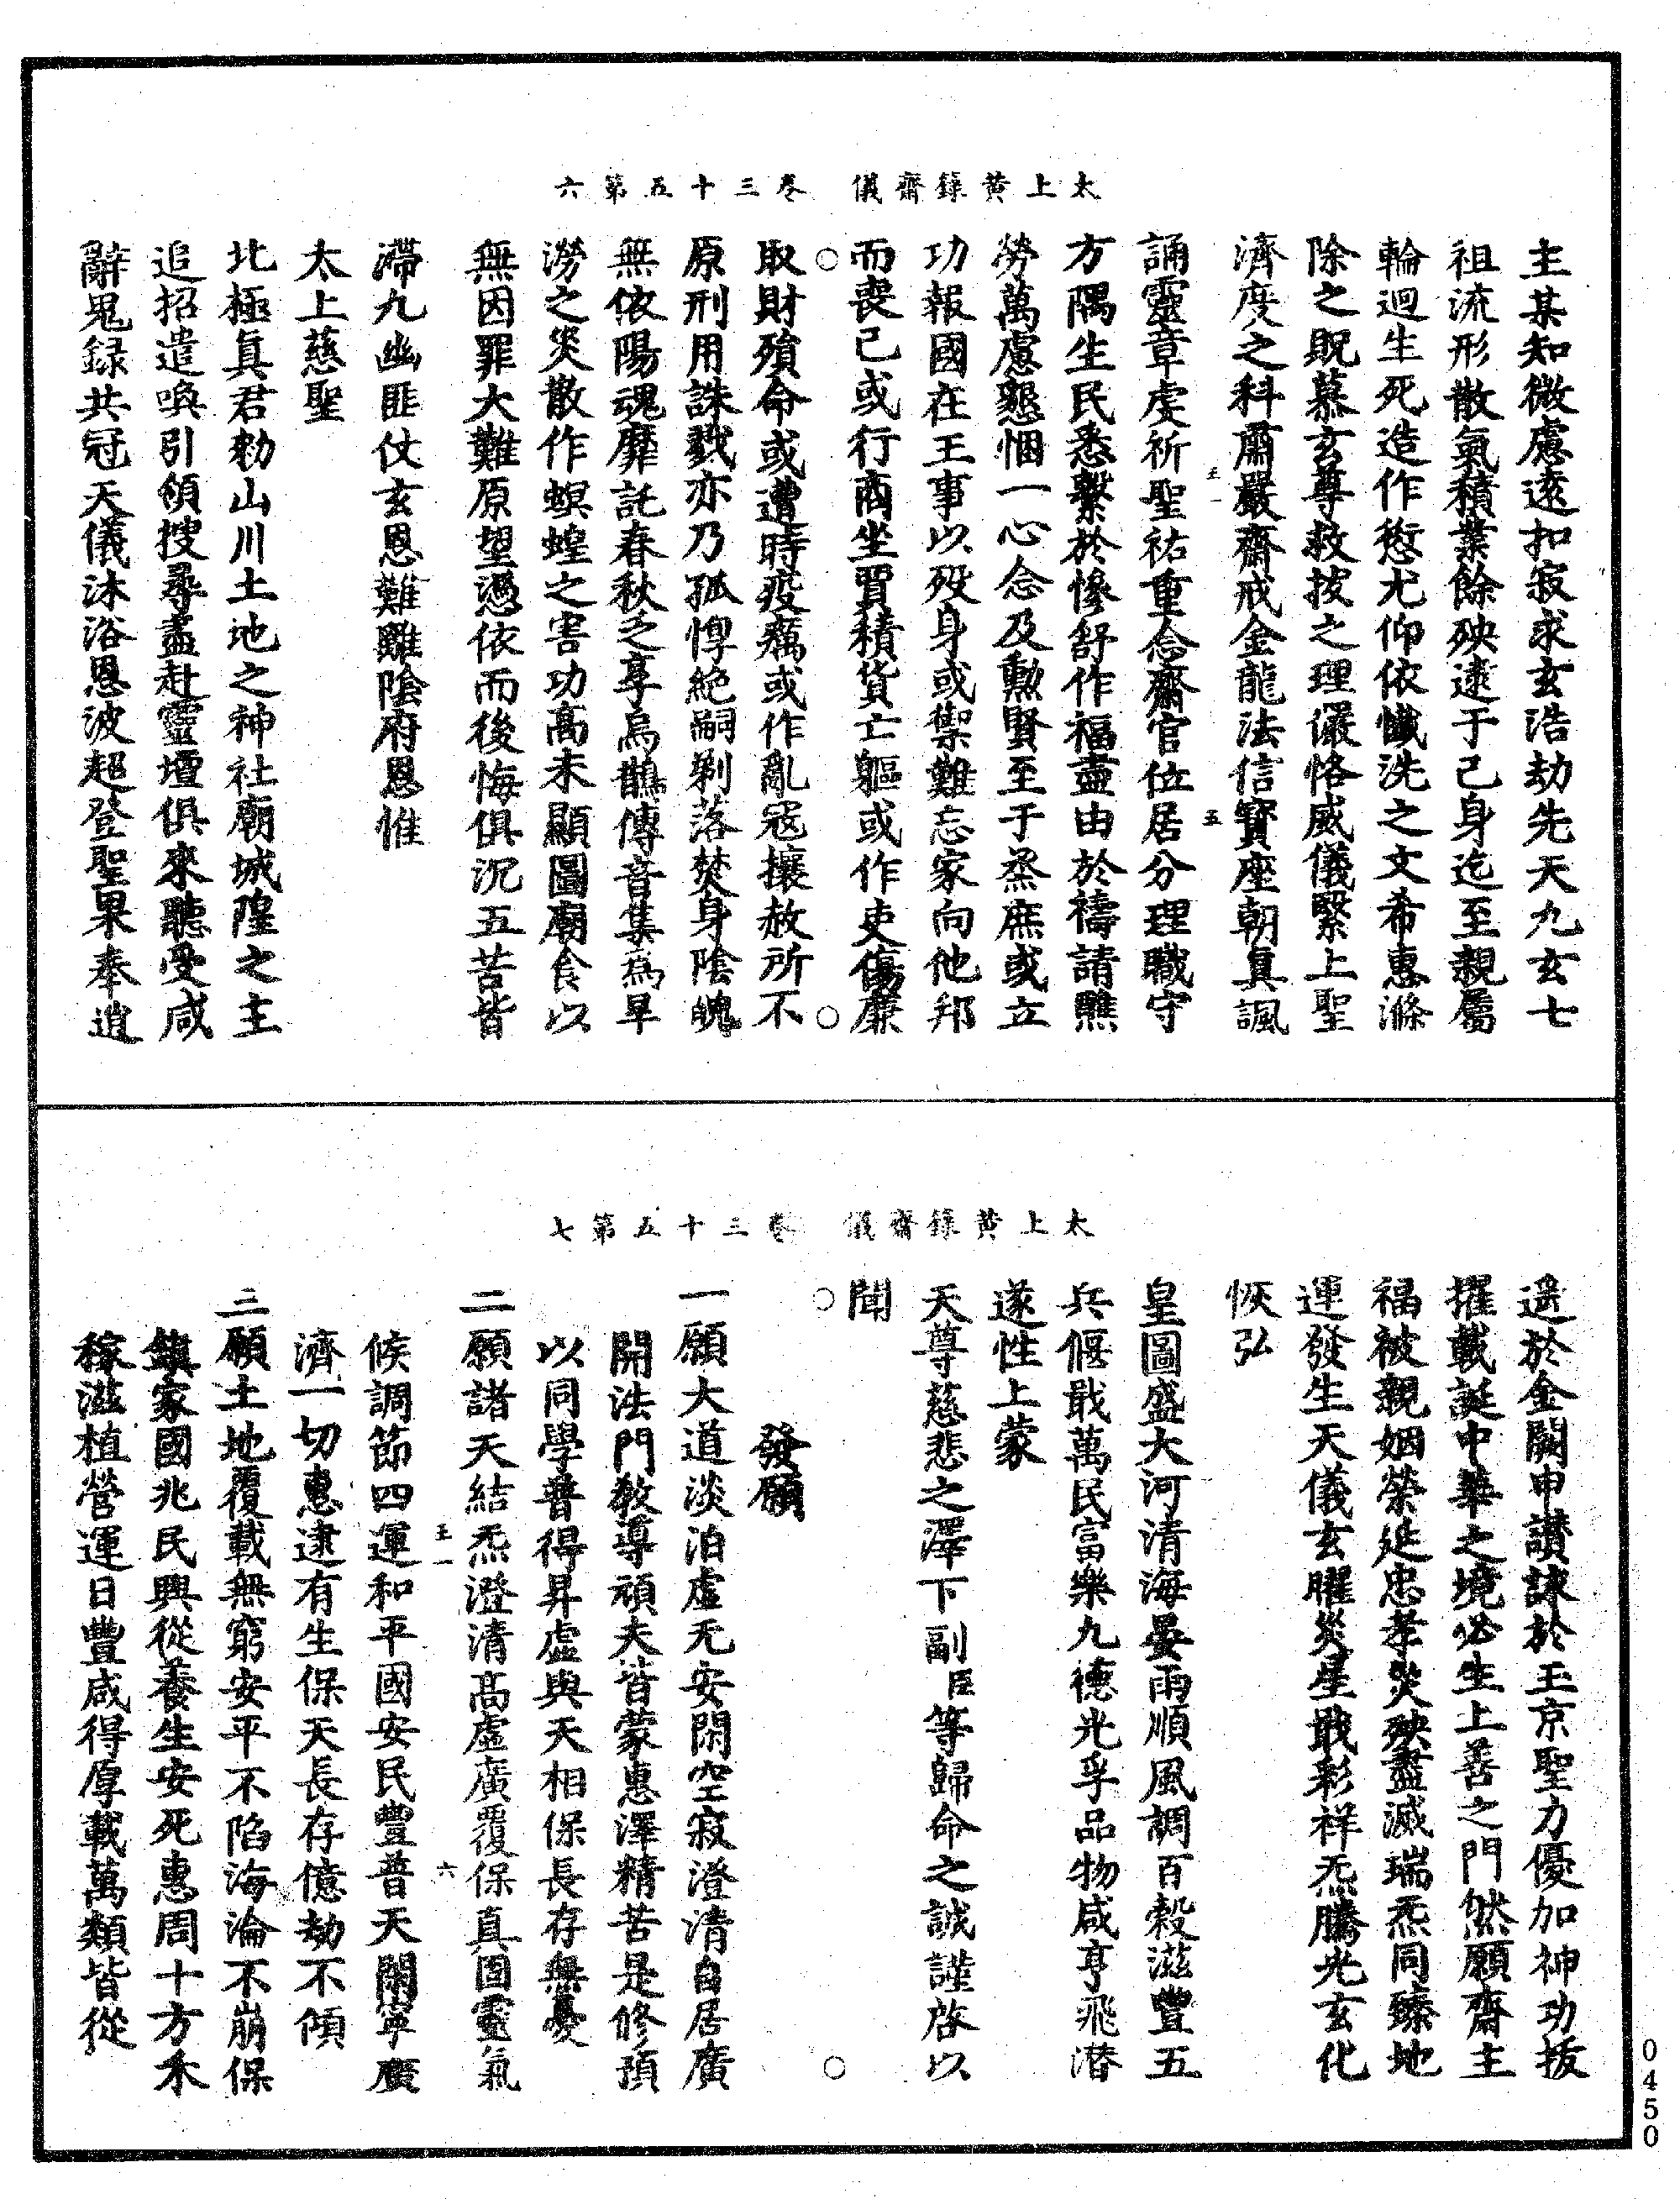 太上黄籙齋儀　卷三十五第六
主某知微慮遠扣寂求玄浩劫先天九玄七
祖流形散氣積業餘殃逮于己身迄至親屬
輪迴生死造作愆尤仰依懺洗之文希惠滌
除之貺慕玄尊救拔之理儼恪威儀緊上聖
濟度之科肅嚴齋戒金龍法信寶座朝真諷
王一　五
誦靈章虔祈聖祐重念齋官位居分理職守
方隅生民悉繫於慘舒作福盡由於禱請醮
勞萬慮懇悃一心念及勲賢至于烝庶或立
功報國在王事以歿身或禦難忘家向他邦
而喪己或行商坐賈積貨亡軀或作吏傷廉
取財殞命或遭時疫癘或作亂寇攘赦所不
原刑用誅戮亦乃孤惸絶嗣剃落焚身陰魄
無依陽魂靡託春秋乏享烏鵲傳音集為旱
澇之災散作螟蝗之害功高未顯圖廟食以
無因罪大難原望憑依而後悔俱沉五苦皆
滯九幽匪仗玄恩難離陰府恩惟
太上慈聖
北極真君勑山川土地之神社廟城隍之主
追招遣喚引領搜尋盡赴靈壇俱來聽受咸
辭鬼録共冠天儀沐浴恩波超登聖果奉逍
太上黄籙齋儀　卷三十五第七
遥於金闕申讃詠於玉京聖力優加神功拔
擢載誕中華之境必生上善之門然願齋主
福被親姻榮延忠孝災殃盡滅瑞炁同臻地
運發生天儀玄曜災星戢彩祥炁騰光玄化
恢弘
皇圖盛大河清海晏雨順風調百穀滋豐五
兵偃戢萬民富樂九德光孚品物咸亨飛潜
遂性上蒙
天尊慈悲之澤下副臣等歸命之誠謹啓以
聞
發願
一願大道淡泊虛无安閑空寂澄清自居廣
開法門敎導頑夫皆蒙惠澤精苦是修預
以同學普得昇虛與天相保長存無憂
二願諸天結炁澄清高虛廣覆保真固靈氣
王一　六
候調節四運和平國安民豐普天閑寧廣
濟一切惠逮有生保天長存億劫不傾
三願土地覆載無窮安平不陷海淪不崩保
鎮家國兆民興從養生安死惠周十方禾
稼滋植營運日豐咸得厚載萬類皆從
0450